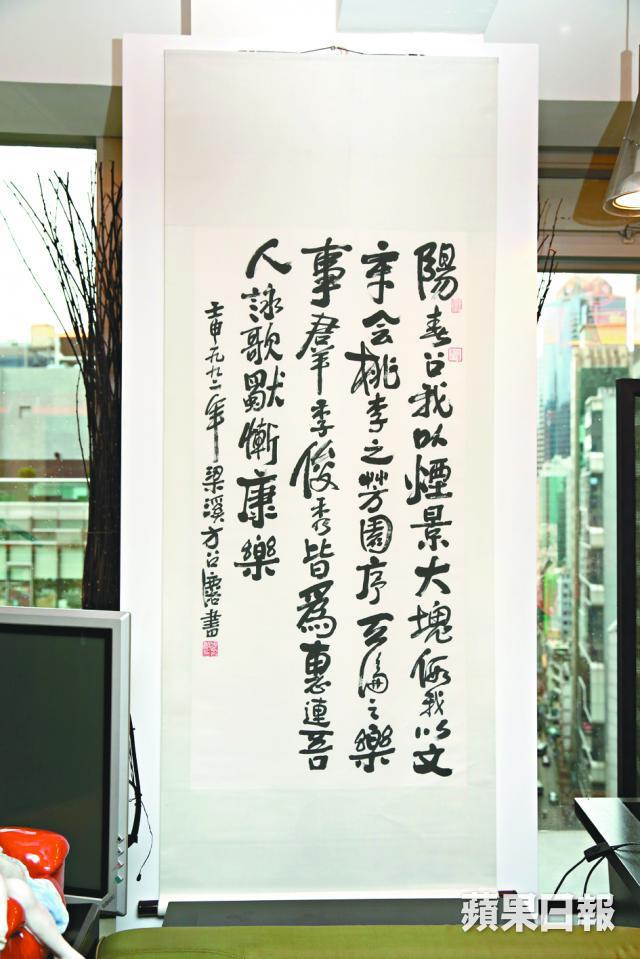 陽春召我以煙景大塊假我以文
章会桃李之芳園序天倫之樂
事羣季俊秀皆為惠連吾
人詠歌獨慚康樂
壬申一九九二年梁溪方召麐書
蘋果日報